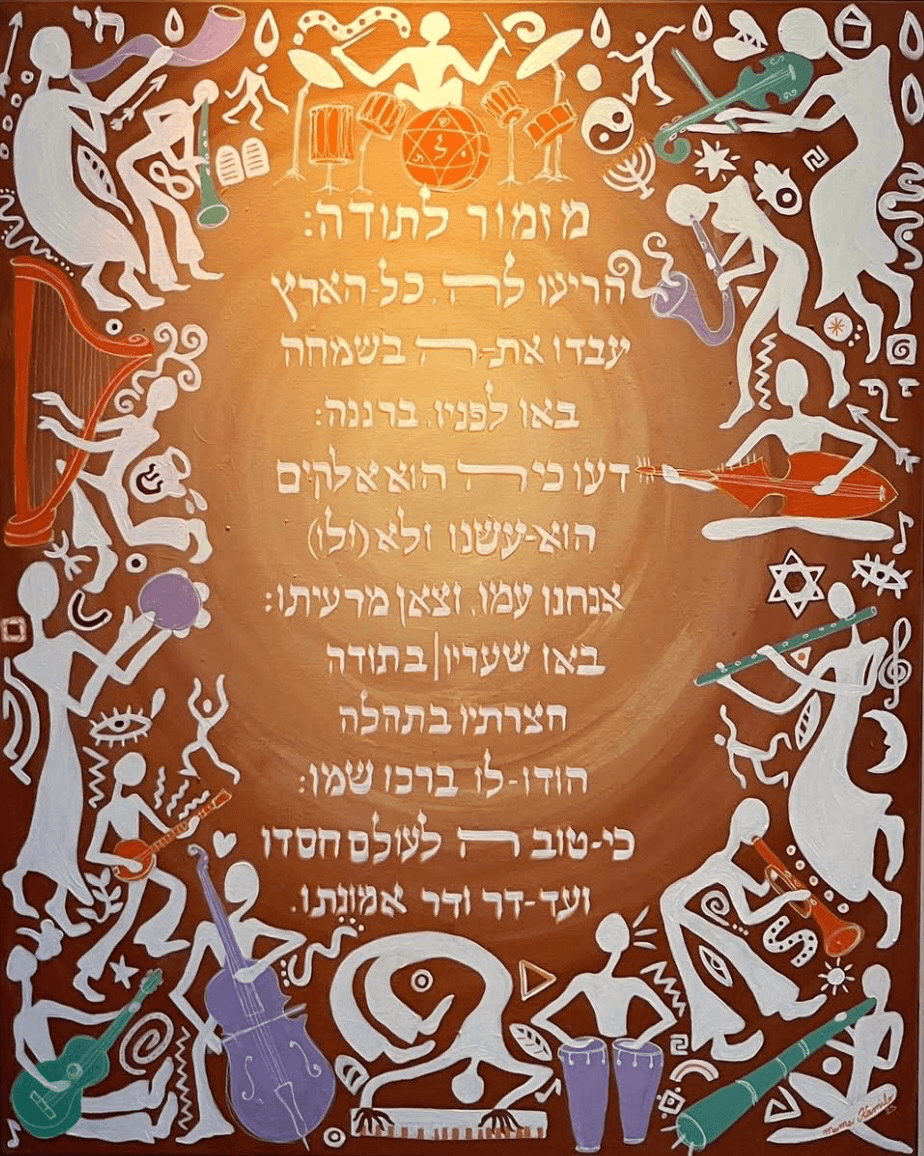 חי
מזמור לתודה:
הריעו לה, כל-הארץ
עבדו את-ה בשמחה
באו לפניו, ברננה:
דעו כי ה הוא אלקים
הוא-עשנו ולא (ולו)
אנחנו עמו, וצאן מרעיתו:
באו שעריו|בתודה
חצרתיו בתהלה
הודו-לו ברכו שמו:
כי-טוב ה לעולם חסדו
ועד-דר ודר אמונתו.